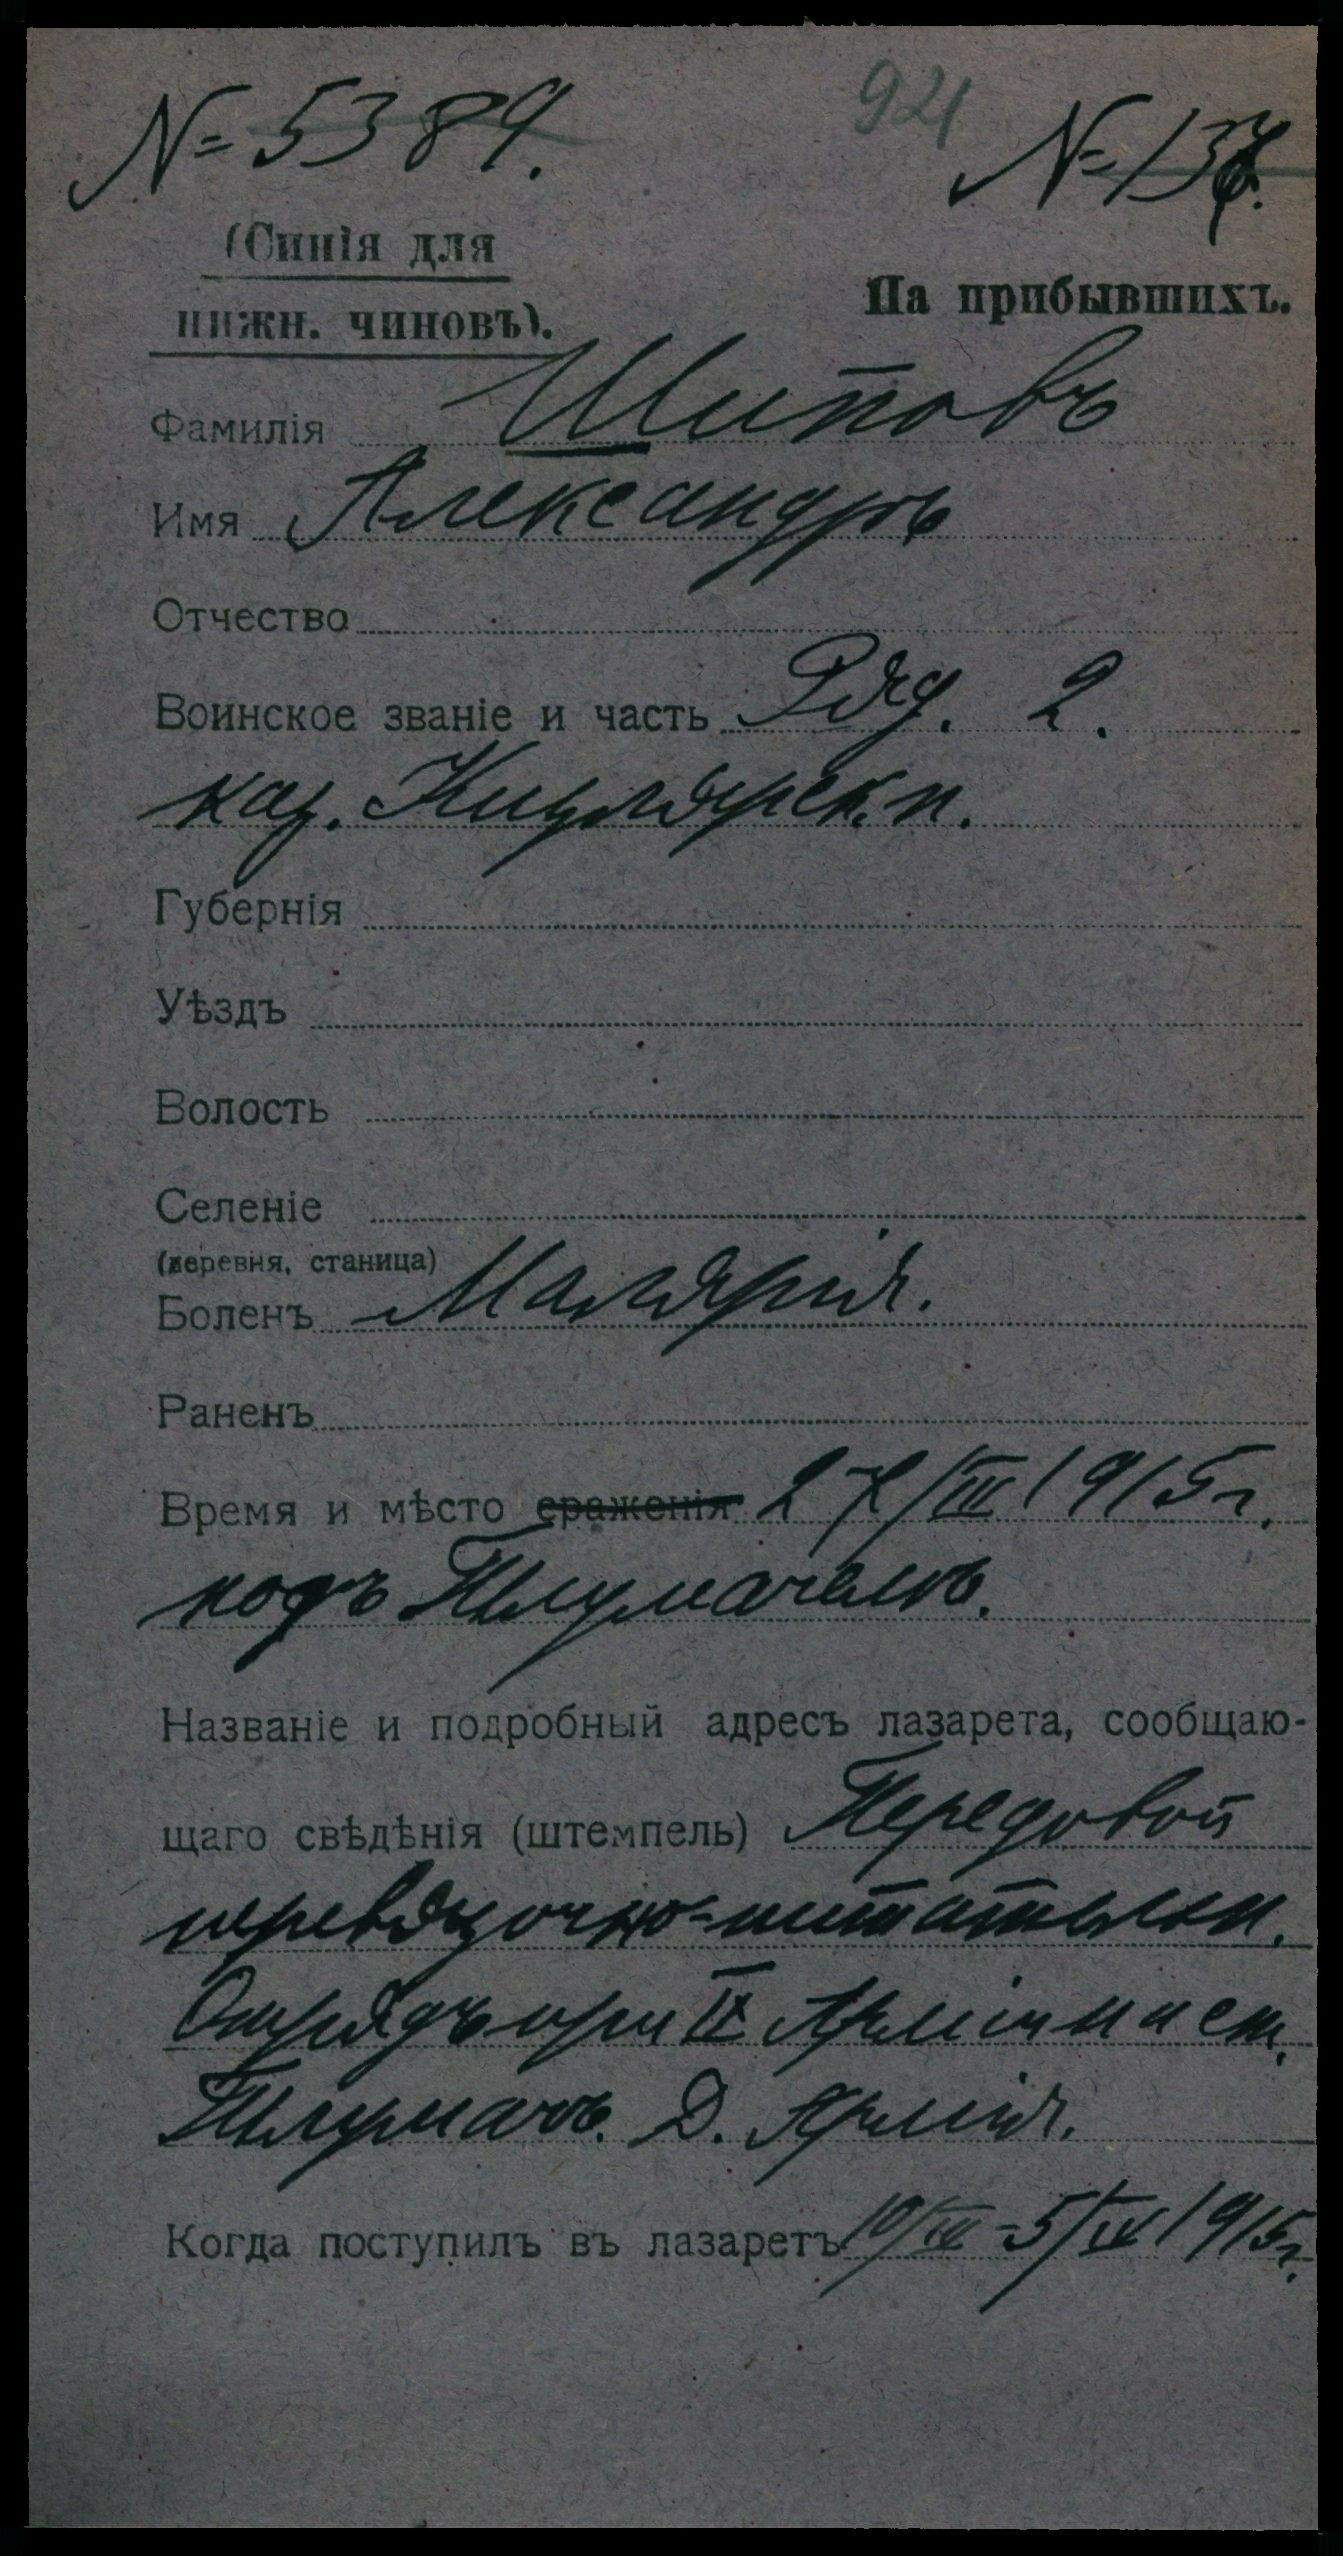 № 5389.
921
№ 137.
(Синія для
нижн. чиновъ).
На прибывшихъ.
Фамилія Шиповъ
Имя Александръ
Отчество
Воинское званіе и часть Ряд. 2.
каз. Кизлярск. п.
Губернія
Уѣздъ
Волость
Селеніе
(деревня, станица)
Боленъ Малярія.
Раненъ
Время и мѣсто сраженія 27/III 1915 г.
подъ Тлумачемъ.
Названіе и подробный адресъ лазарета, сообщаю-
щаго свѣдѣнія (штемпель) Передовой
перевязочно-питательн.
Отрядъ при IX Арміи на ст.
Тлумачъ. Д. Армія.
Когда поступилъ въ лазаретъ 5/IV 1915 г.